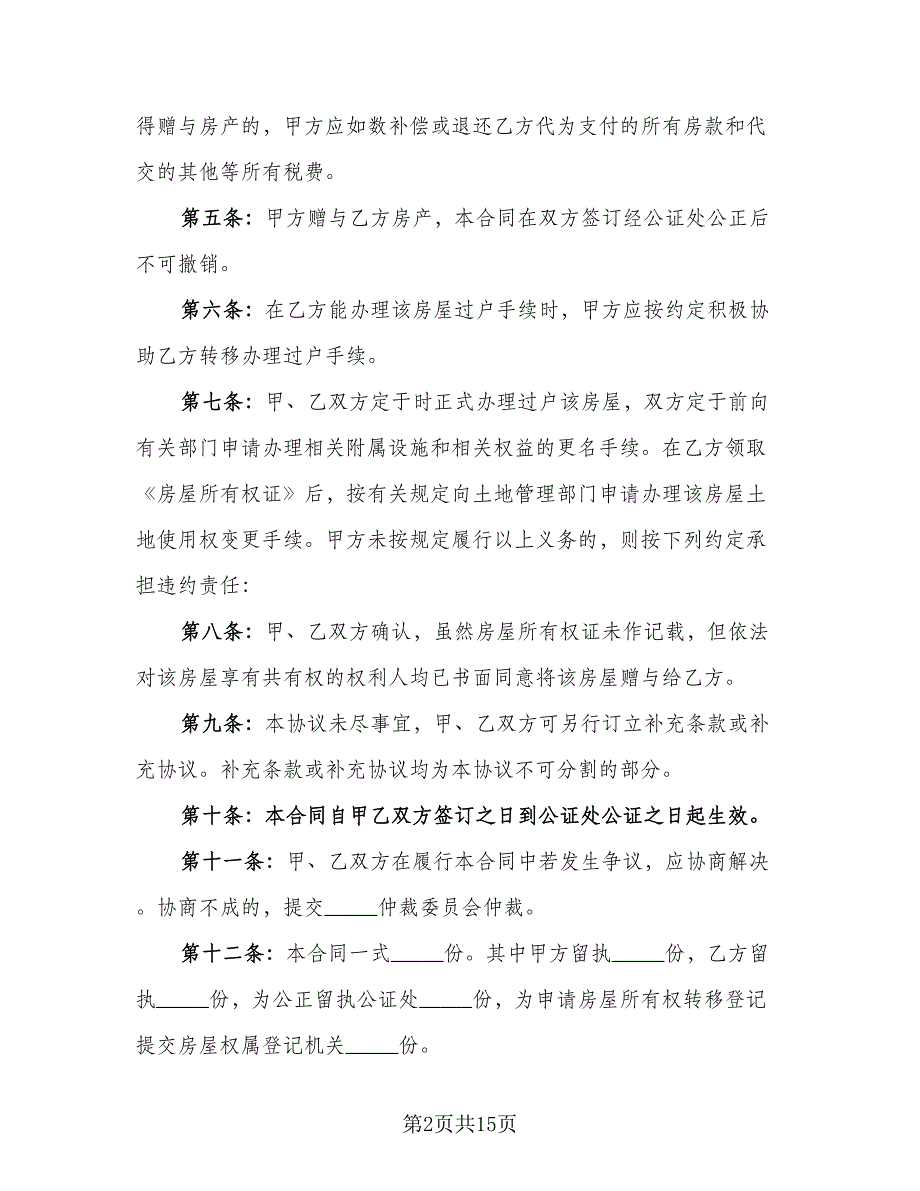 得赠与房产的，甲方应如数补偿或退还乙方代为支付的所有房款和代
交的其他等所有税费。
第五条：甲方赠与乙方房产，本合同在双方签订经公证处公正后
不可撤销。
第六条：在乙方能办理该房屋过户手续时，甲方应按约定积极协
助乙方转移办理过户手续。
第七条：甲、乙双方定于时正式办理过户该房屋，双方定于前向
有关部门申请办理相关附属设施和相关权益的更名手续。在乙方领取
《房屋所有权证》后，按有关规定向土地管理部门申请办理该房屋土
地使用权变更手续。甲方未按规定履行以上义务的，则按下列约定承
担违约责任：
第八条：甲、乙双方确认，虽然房屋所有权证未作记载，但依法
对该房屋享有共有权的权利人均已书面同意将该房屋赠与给乙方。
第九条：本协议未尽事宜，甲、乙双方可另行订立补充条款或补
充协议。补充条款或补充协议均为本协议不可分割的部分。
第十条：本合同自甲乙双方签订之日到公证处公证之日起生效。
第十一条：甲、乙双方在履行本合同中若发生争议，应协商解决
。协商不成的，提交_____仲裁委员会仲裁。
第十二条：本合同一式_____份。其中甲方留执_____份，乙方留
执_____份，为公正留执公证处_____份，为申请房屋所有权转移登记
提交房屋权属登记机关_____份。
第2页共15页